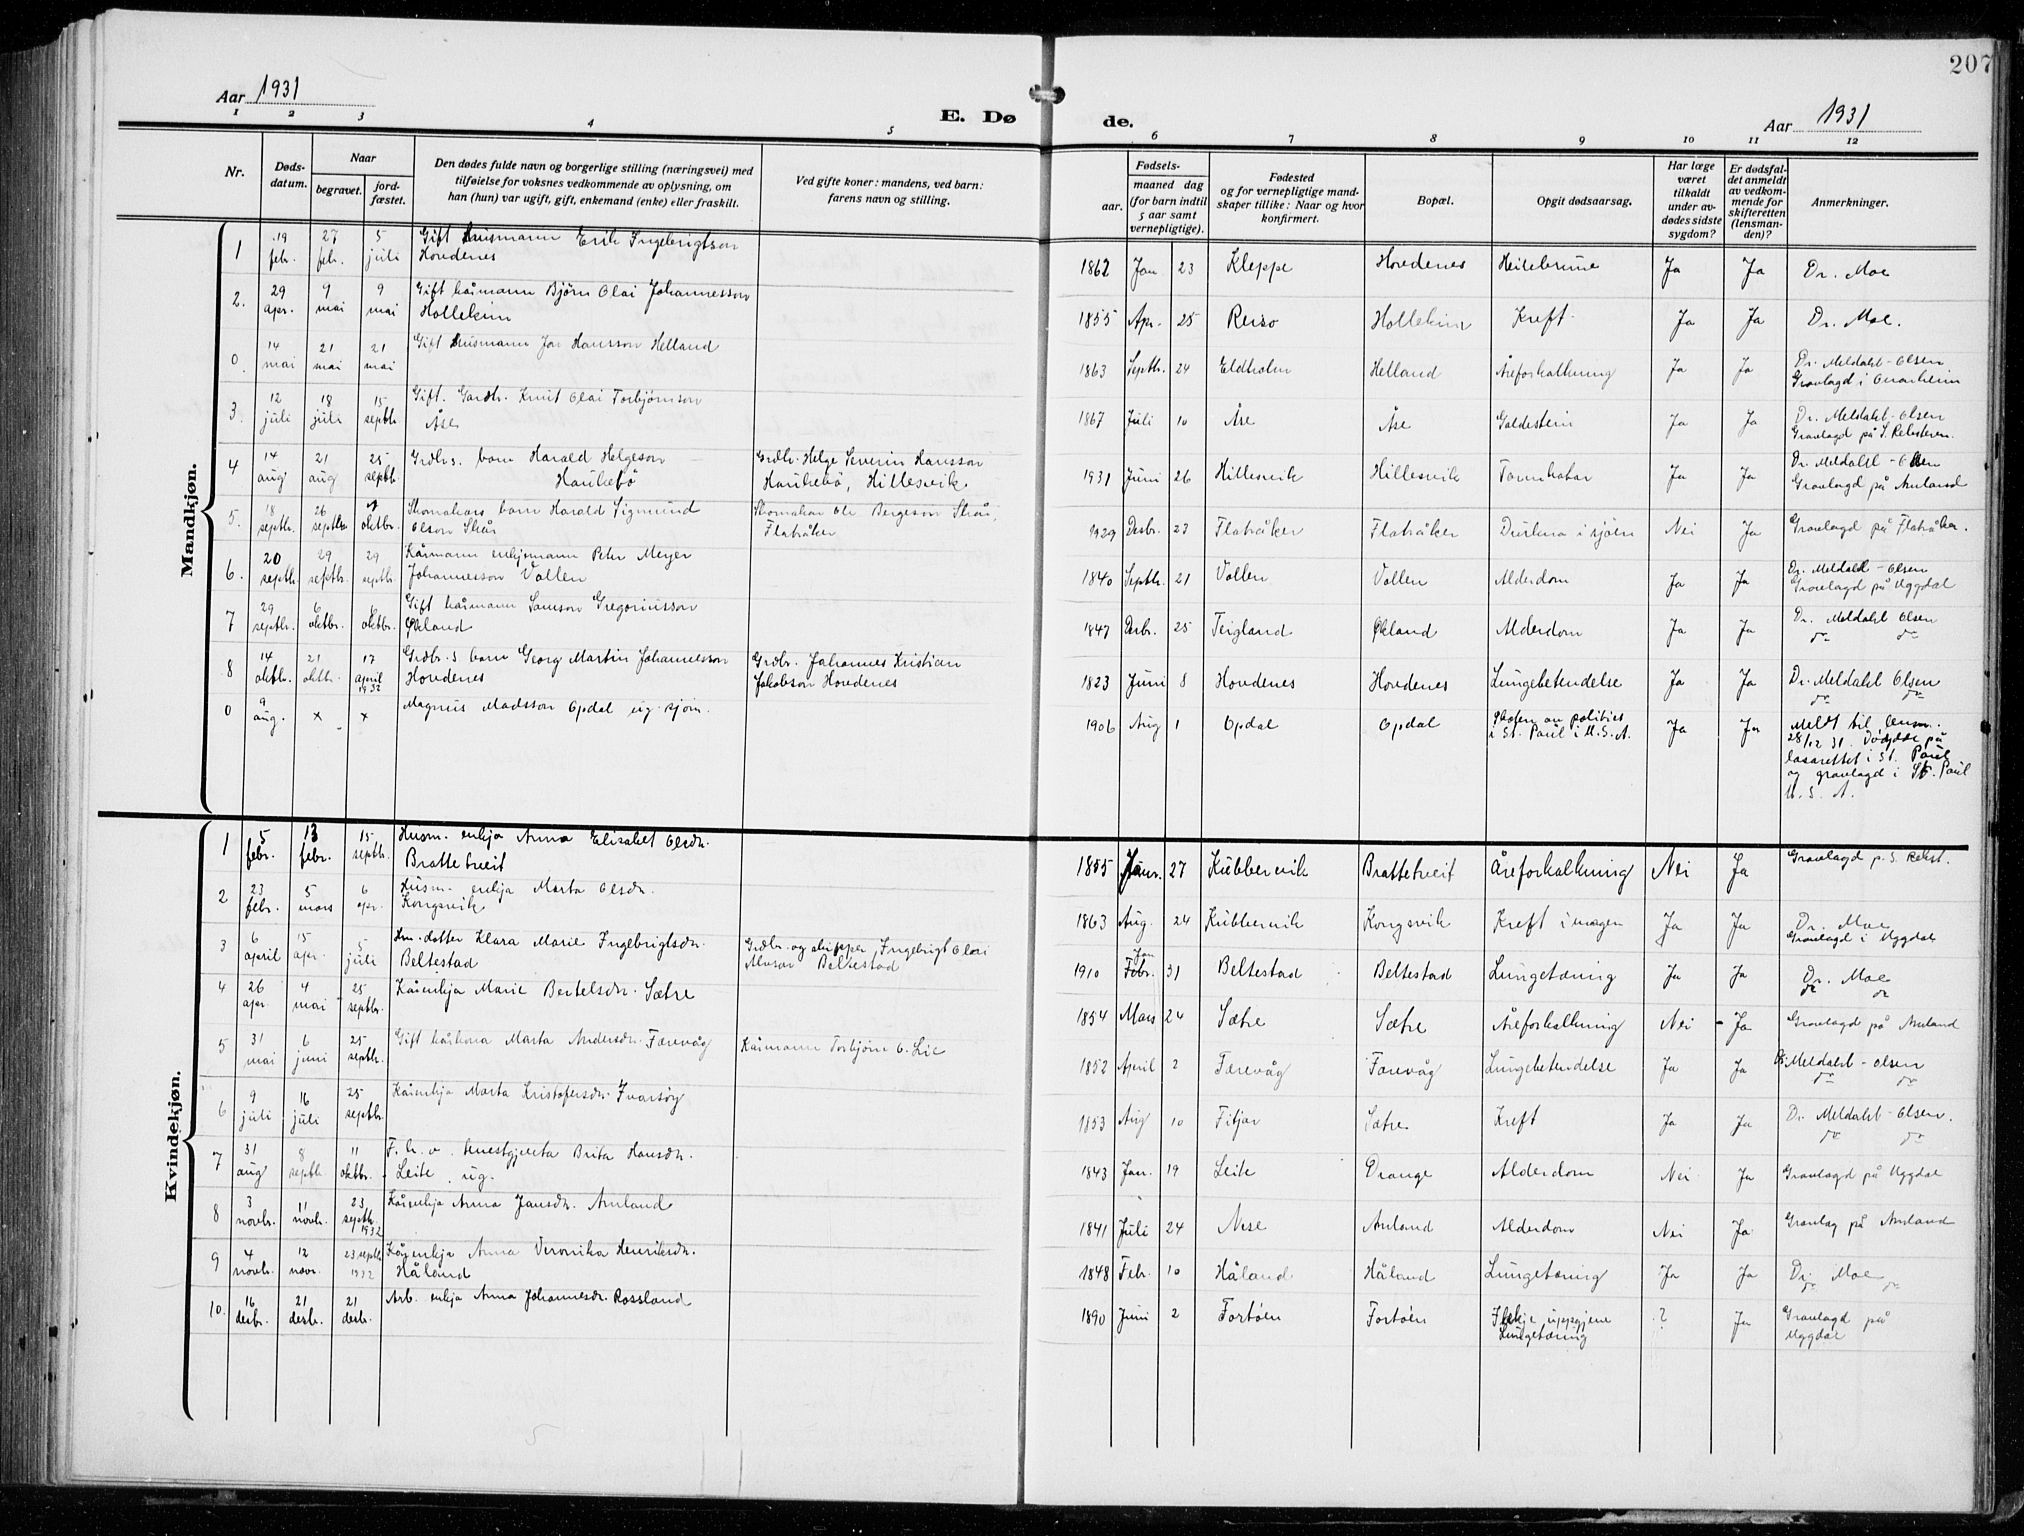 207
Aar 1931
E. Dø
de.
Aar 1931
1 2 3 4 5 6 7 8 9 10 11 12
Nr.
Døds-
datum.
Naar
begravet.
jord-
fæstet.
Den dødes fulde navn og borgerlige stilling (næringsvei) med
tilføielse for voksnes vedkommende av oplysning, om
han (hun) var ugift, gift, enkemand (enke) eller fraskilt.
Ved gifte koner: mandens, ved barn:
farens navn og stilling.
Fødsels-
aar.
maaned dag
(for barn indtil
5 aar samt
vernepligtige).
Fødested
og for vernepligtige mand-
skaper tillike: Naar og hvor
konfirmert.
Bopæl.
Opgit dødsaarsag.
Har læge
været
tilkaldt
under av-
dødes sidste
sygdom?
Er dødsfal-
det anmeldt
av vedkom-
mende for
skifteretten
(lensman-
den)?
Anmerkninger.
Mandkjøn.
1 19 febr. 27 febr. 5 juli Gift husmann Erik Ingebrigtson
Hovdenes
1862 Jan 23 Kleppe Hovdenes Ja Ja Dr. Moe
2. 29 apr. 9 mai 9 mai Gift kårmann Bjørn Olai Johannesson
Hollekim
1855 Apr. 25 Reisø Hollekim Kreft Ja Ja Dr. Moe.
0. 14 mai 21 mai 21 mai Gift husmann Jon Hansson Helland
1863 Septbr. 24 Eldholm Helland Åreforkalkning Ja Ja Dr. Meldahl-Olsen
Gravlagd i
3. 12 juli 18 juli 15 septbr. Gift. Gardbr. Knut Olai Torbjørnson
Åse
1867 Juli 10 Åse Åse Galdestein Ja Ja Dr. Meldahl-Olsen
Gravlagd på S. Reksteren.
4 14 aug 21 aug 25 septbr. Grdbr.s. barn Harald Helgeson
Haukebø
Grdbr. Helge Severin Hansson
Haukebø, Hillesvik
1931 Juni 26 Hillesvik Hillesvik Ja Ja Dr. Meldahl-Olsen
Gravlagd på Amland
5. 18 septbr. 26 septbr. oktbr. Skomakars barn Harald Sigmund
Olson Skår
Skomakar Ole Bergeson Skår,
Flatråker
1929 Desbr. 23 Flatråker Flatråker i sjøen Nei Ja Gravlagd på Flatråker.
6. 20 septbr. 29 septbr. 29 septbr. Kårmann enkjemann Peter Meyer
Johannesson Vallen
1840 Septbr. 21 Vollen Vollen Alderdom Ja Ja Dr. Meldahl-Olsen
Gravlagd på Uggdal
7 29 septbr. 6 oktbr. oktbr. Gift kårmann Samson Gregoriusson
Økland
1847 Desbr. 25 Teigland Økland Alderdom Ja Ja Dr. Meldahl Olsen
do do
8 14 oktbr. 21 oktbr. 17 april 1932 Grdbr.s barn Georg Martin Johannesson
Hovdenes
Grdbr. Johannes Kristian
Jakobson Hovdenes
1823 Juni 8 Hovdenes Hovdenes Lungebetendelse Ja Ja Dr. Meldahl Olsen
do do
0 9 aug. x x Magnus Madsson Opdal ug. sjøm.
1906 Aug 1 Opdal Opdal Skoten av politiet
i St. Paul i U.S.A. Ja Ja Meldt til lensm.
28/12 31. Døydde på
lasarettet i St. Paul
og gravlagd i St. Paul
U. S. A.
Kvindekjøn.
1 5 febr. 13 febr. 15 septbr. Husm. enkja Anna Elisabet Olsdtr.
Brattetveit
1855 Janr. 27 Kubbervik Brattetveit Åreforkalkning Nei Ja Gravlagd p. S. Rekst.
2 23 febr. 5 mars 6 apr. Husm. enkja Marta Olsdtr.
Kongsvik
1863 Aug. 24 Kubbervik Kongsvik Kreft i magen Ja Ja Dr. Moe
Gravlagd i Uggdal
3 6 april 15 apr. 5 juli Hm. dotter Klara Marie Ingebrigtsdtr.
Beltestad
Grdbr. og skipper Ingebrigt Olai
Beltestad
1910 Jan Febr. 31 Beltestad Beltestad Lungetæring Ja Ja Dr. Moe
do do
4 26 apr. 4 mai 25 septbr. Kårenkja Marie Bertelsdtr. Sætre
1854 Mars 24 Sætre Sætre Åreforkalkning Nei Ja Gravlagd på Amland
5 31 mai 6 juni 25 septbr. Gift kårkona Marta Andersdtr. Færevåg
Kårmann Torbjørn O. Lie
1852 April 2 Færevåg Færevåg Lungebetendelse Ja Ja Dr. Meldahl-Olsen
do do
6 9 juli 16 juli 25 septbr. Kårenkja Marta Kristofersdtr. Ivarsøy
1853 Aug 10 Fitjar Sætre Kreft Ja Ja Dr. Meldahl-Olsen.
do do
7 31 aug 8 septb. 11 oktbr. F. h. v. tenestgjenta Brita Hansdtr.
Leite, ug.
1843 Jan. 19 Leite Drange Alderdom Nei Ja Gravlagd på Uggdal
8 3 novbr. 11 novbr. 23 septbr. 1932 Kårenkja Anna Jansdtr. Amland
1841 Juli 24 Nese Amland Alderdom Nei Ja Gravlag på Amland
9 4 novbr. 12 novr. 23 septbr 1932 Kårenkja Anna Veronika Henriksdtr.
Håland
1848 Febr. 10 Håland Håland Lungetæring Ja Ja Dr. Moe
do do
10. 16 desbr. 21 desbr. 21 desbr. Arb. enkja Anna Johannesdtr. Rossland
1890 Juni 2 Fortøen Fortøen Ikkje uppgjeve
Lungetæring ? Ja Gravlagd på
Uggdal